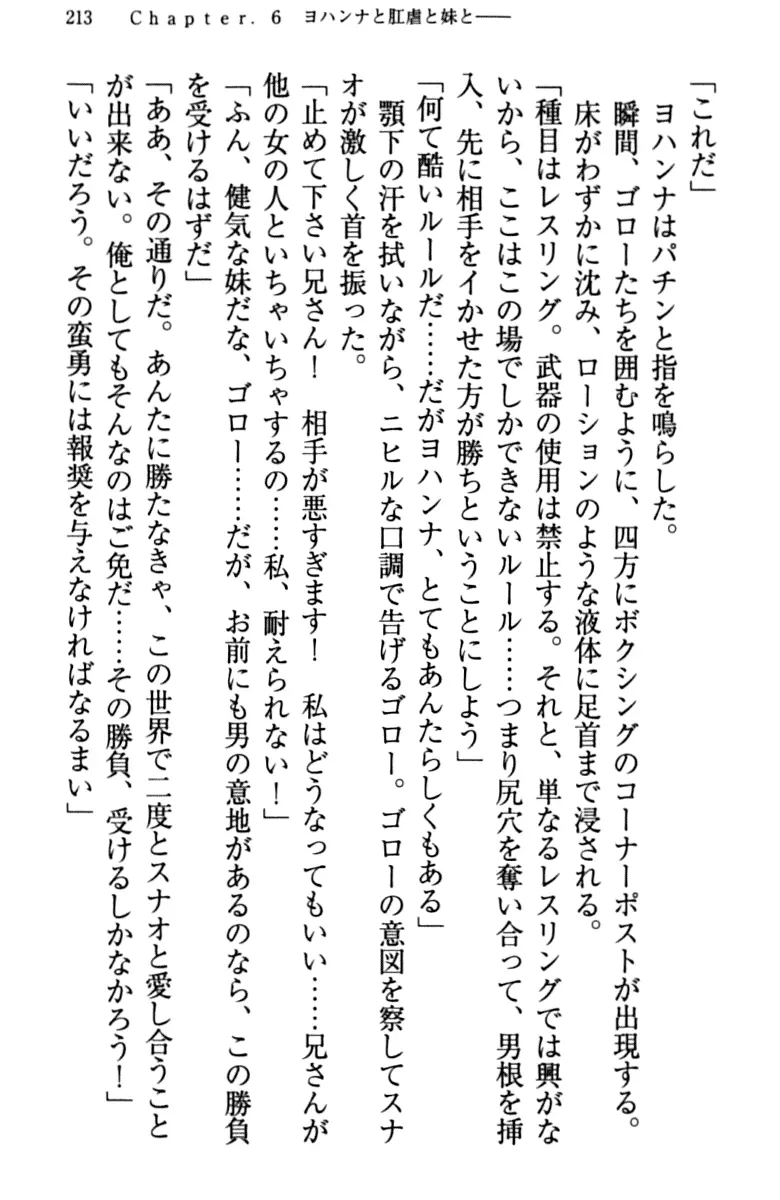 213　Chapter. 6　ヨハンナと肛虐と妹と――
「これだ」
　ヨハンナはパチンと指を鳴らした。
　瞬間、ゴローたちを囲むように、四方にボクシングのコーナーポストが出現する。
　床がわずかに沈み、ローションのような液体に足首まで浸される。
「種目はレスリング。武器の使用は禁止する。それと、単なるレスリングでは興がな
いから、ここはこの場でしかできないルール……つまり尻穴を奪い合って、男根を挿
入、先に相手をイかせた方が勝ちということにしよう」
「何て酷いルールだ……だがヨハンナ、とてもあんたらしくもある」
　顎下の汗を拭いながら、ニヒルな口調で告げるゴロー。ゴローの意図を察してスナ
オが激しく首を振った。
「止めて下さい兄さん！　相手が悪すぎます！　私はどうなってもいい……兄さんが
他の女の人といちゃいちゃするの……私、耐えられない！」
「ふん、健気な妹だな、ゴロー……だが、お前にも男の意地があるのなら、この勝負
を受けるはずだ」
「ああ、その通りだ。あんたに勝たなきゃ、この世界で二度とスナオと愛し合うこと
が出来ない。俺としてもそんなのはご免だ……その勝負、受けるしかなかろう！」
「いいだろう。その蛮勇には報奨を与えなければなるまい」